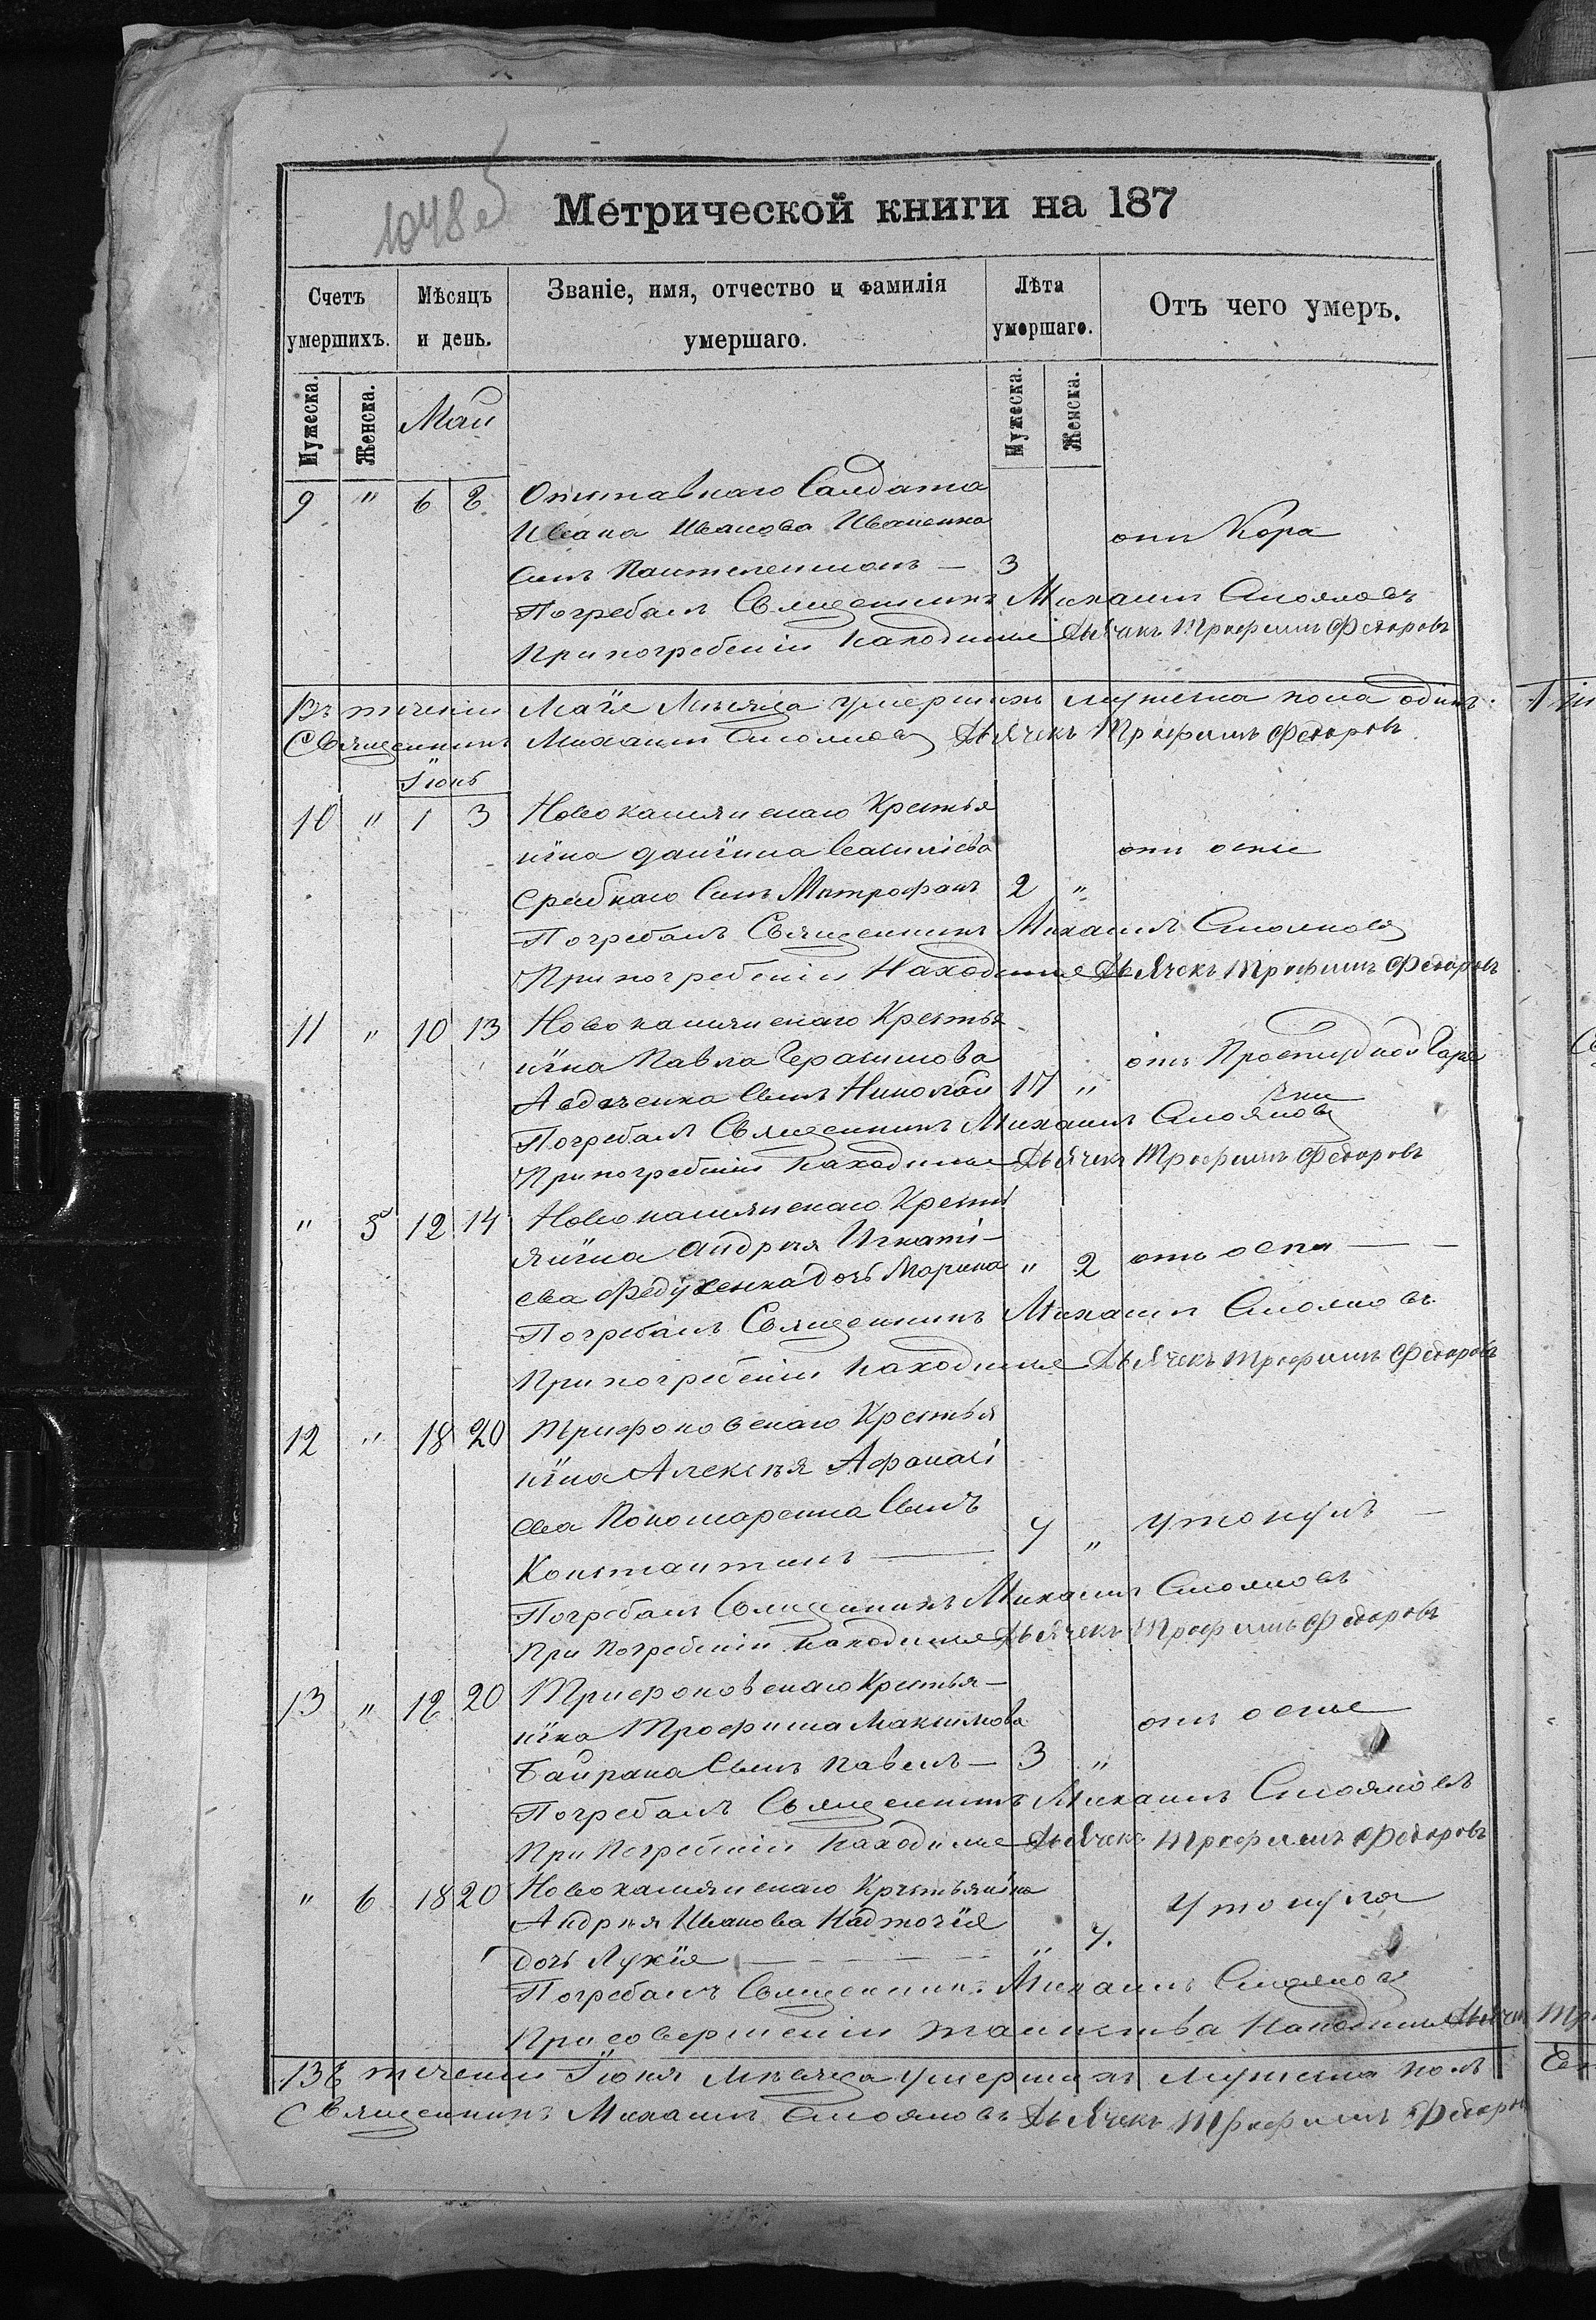 1048 об
Метрической книги на 187
Счетъ умершихъ.
Мѣсяцъ и день.
Званіе, имя, отчество и фамилія умершаго.
Лѣта умершаго.
Отъ чего умеръ.
Мужеска. Женска. Май Мужеска. Женска.
9 " 6 8 Отставнаго Салдата
Ивана Иванова Иваненка отъ Кора
Сынъ Пантелеимонъ — 3
Погребалъ Священникъ Михаилъ Стояновъ
При погребеніи находился Дьячекъ Трофимъ Федоровъ
Въ теченіи Маія Мѣсяца умершихъ мужеска пола одинъ.
Священникъ Михаилъ Стояновъ Дьячекъ Трофимъ Федоровъ
Іюнь
10 " 1 3 Новокашянскаго Крестья
нїна Данїила Василіева отъ оспы
Срибнаго Сынъ Митрофанъ 2 "
Погребалъ Священникъ Михаилъ Стояновъ
При погребеніи Находился Дьячекъ Трофимъ Федоровъ
11 " 10 13 Новокашянскаго Крестья
нїна Павла Герасимова отъ Простудной Горя
Авдѣенка Сынъ Николай 17 " чки
Погребалъ Священникъ Михаилъ Стояновъ
При погребеніи находился Дьячекъ Трофимъ Федоровъ
" 5 12 14 Новокашянскаго Крестьі
янїна Андрея Игнаті-
ева Федусенка дочь Марина " 2 отъ оспы — —
Погребалъ Священникъ Михаилъ Стояновъ
При погребеніи находился Дьячекъ Трофимъ Федоровъ
12 " 18 20 Трифоновскаго Крестья
нїна Алексѣя Афанасі
ева Пономаренка Сынъ
Константинъ — 4 " утонулъ —
Погребалъ Священникъ Михаилъ Стояновъ
При Погребеніи находился Дьячекъ Трофимъ Федоровъ
13 " 18 20 Трифоновскаго Крестья-
нїна Трофима Максимова отъ оспы
Байрака Сынъ Павелъ — 3 "
Погребалъ Священникъ Михаилъ Стояновъ
При Погребеніи находился Дьячекъ Трофимъ Федоровъ
" 6 18 20 Новокашянскаго Крестьянїна
Андрея Иванова Надточїя Утонула
дочь Лукїя — — — " 4.
Погребалъ Священникъ Михаилъ Стояновъ
При совершеніи таинства находился Дьячекъ
Въ теченіи Іюня мѣсяца умершихъ мужеска полъ
Священникъ Михаилъ Стояновъ Дьячекъ Трофимъ Федоровъ